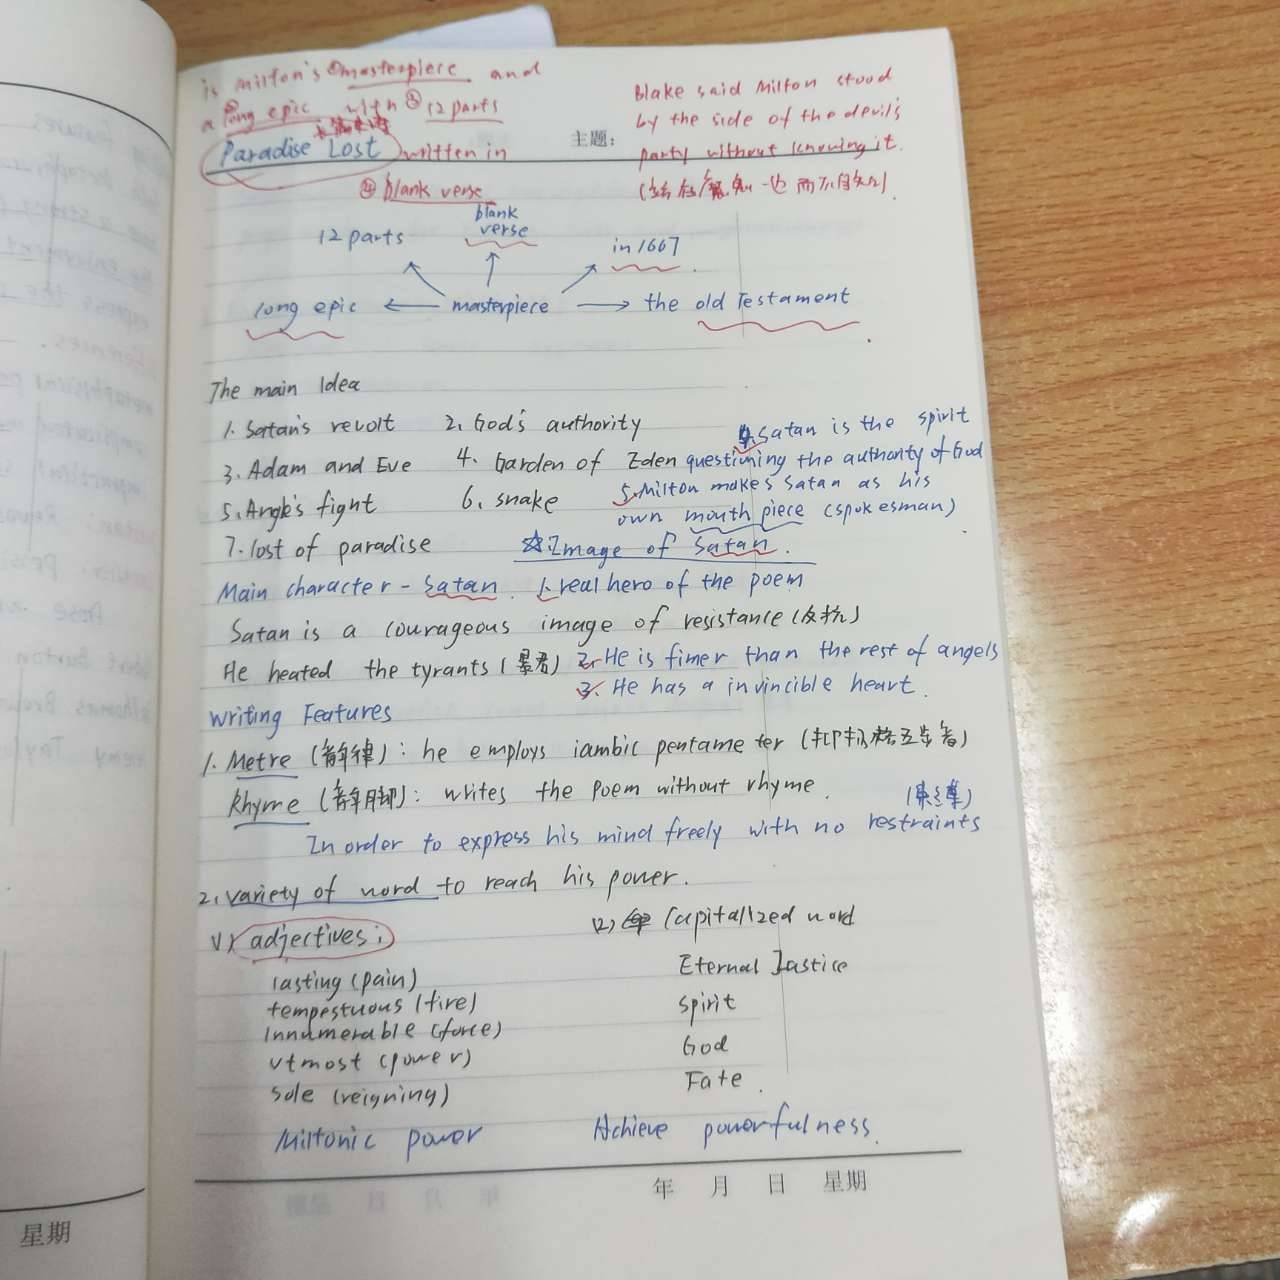 is Milton's ① masterpiece and
a ② long epic with ③ 12 parts
长篇史诗
Paradise Lost written in
④ blank verse
主题:
Blake said Milton stood
by the side of the devil's
party without knowing it.
(站在魔鬼一边而不自知)
12 parts
blank
verse
in 1667
long epic ← masterpiece → the old Testament
The main Idea
1. Satan's revolt 2. God's authority
3. Adam and Eve 4. Garden of Eden
5. Angle's fight 6. snake
7. lost of paradise
4. Satan is the spirit
questioning the authority of God
5. Milton makes Satan as his
own mouth piece (spokesman)
☆ Image of Satan.
Main character - Satan. 1. real hero of the poem
Satan is a courageous image of resistance (反抗)
He heated the tyrants (暴君) 2. He is firmer than the rest of angels
3. He has a invincible heart.
Writing Features
1. Metre (音律): he employs iambic pentameter (抑扬格五步音)
Rhyme (韵脚): writes the poem without rhyme.
(束缚)
In order to express his mind freely with no restraints
2. variety of word to reach his power.
(1) adjectives:
lasting (pain)
tempestuous (fire)
innumerable (force)
utmost (power)
sole (reigning)
Miltonic power
(2) Capitalized word
Eternal Jastice
Spirit
God
Fate.
Achieve powerfulness.
年 月 日 星期
星期